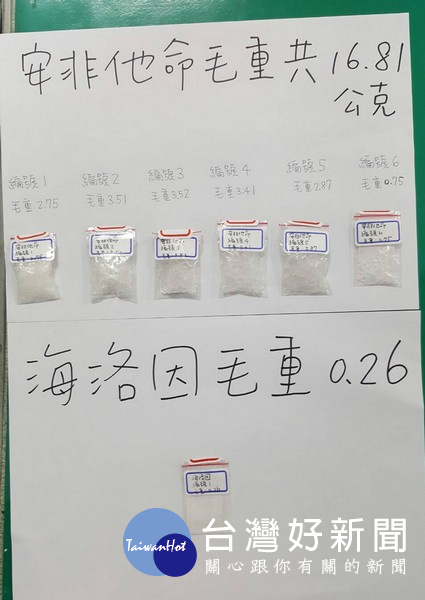 安非他命毛重共16.81
公克
編號1 編號2 編號3 編號4 編號5 編號6
毛重2.75 毛重3.51 毛重3.52 毛重3.41 毛重2.87 毛重0.75
海洛因毛重0.26
海洛因
編號1
TaiwanHot
台灣好新聞
關心跟你有關的新聞